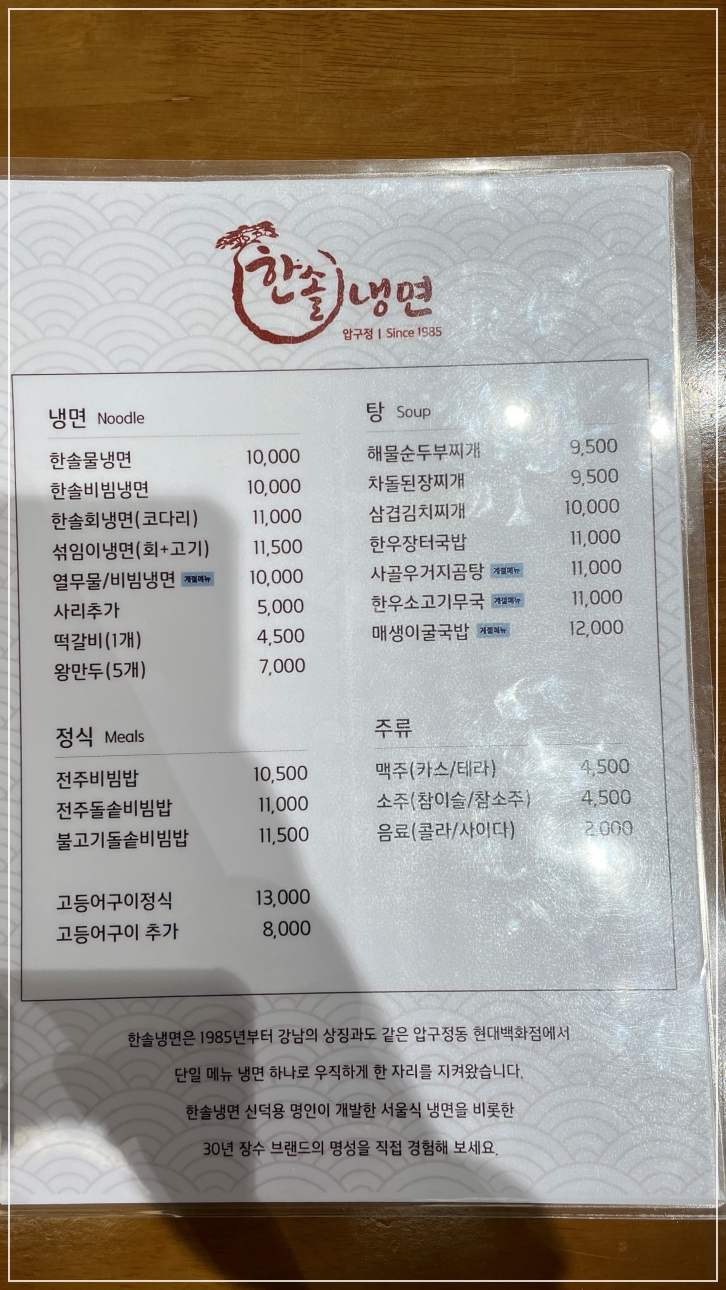 한솔냉면
압구정 | Since 1985
냉면 Noodle
한솔물냉면 10,000
한솔비빔냉면 10,000
한솔회냉면(코다리) 11,000
섞임이냉면(회+고기) 11,500
열무물/비빔냉면 계절메뉴 10,000
사리추가 5,000
떡갈비(1개) 4,500
왕만두(5개) 7,000
정식 Meals
전주비빔밥 10,500
전주돌솥비빔밥 11,000
불고기돌솥비빔밥 11,500
고등어구이정식 13,000
고등어구이 추가 8,000
탕 Soup
해물순두부찌개 9,500
차돌된장찌개 9,500
삼겹김치찌개 10,000
한우장터국밥 11,000
사골우거지곰탕 계절메뉴 11,000
한우소고기무국 계절메뉴 11,000
매생이굴국밥 계절메뉴 12,000
주류
맥주(카스/테라) 4,500
소주(참이슬/참소주) 4,500
음료(콜라/사이다) 2,000
한솔냉면은 1985년부터 강남의 상징과도 같은 압구정동 현대백화점에서
단일 메뉴 냉면 하나로 우직하게 한 자리를 지켜왔습니다.
한솔냉면 신덕용 명인이 개발한 서울식 냉면을 비롯한
30년 장수 브랜드의 명성을 직접 경험해 보세요.